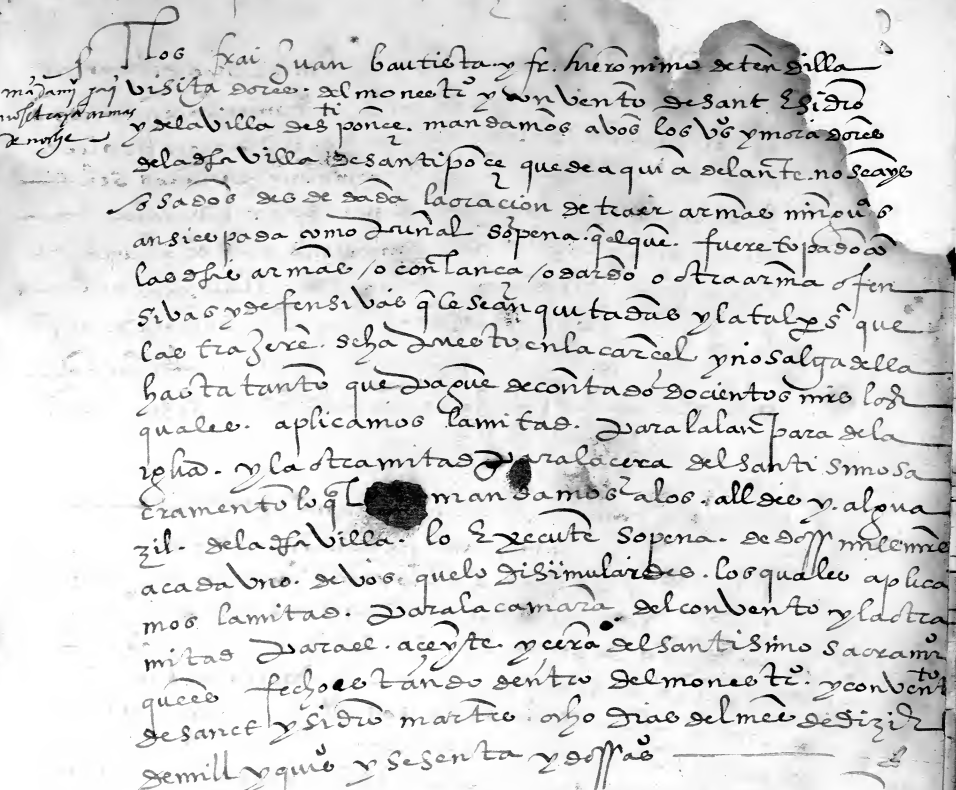 Nos frai Juan bautista y fr. hieronimo de tendilla
visitadores del monestrº y convento de sant Esidro
mandamiº
no se traya armas
de noche
y de la villa de stiponce. mandamos a vos los vºs y moradores
de la dha villa de santiponce que de aqui adelante no seays
osados desde dada la oracion de traer armas ningunas
ansi espada como puñal so pena q el que fuere topado co
las dhas armas /o con lanca /o dardo o otra arma ofen
sivas y defensivas q le sean quitadas y la tal persª que
las trazere seha puesto en la carcel y no salga della
hasta tanto que pague de contado docientos mrs los
quales aplicamos la mitad para la lanpara de la
igliª. y la otra mitad para la cera del santisimo sa
cramento lo ql mandamos a los alldes y algua
zil de la dha villa lo Execute so pena de doss mill mrs
a cada uno de vos que lo disimulardes los quales aplica
mos la mitad para la camara del convento y la otra
mitad para el aceyte y cera del santissimo sacramtº
ques fecho estando dentro del monestrº y conventº
de sanct ysidro martes ocho dias del mes de dizir
de mill y quiºs y sesenta y doss aºs